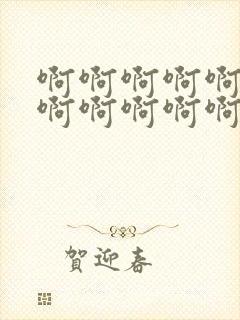 啊啊啊啊啊
啊啊啊啊啊
賀迎春